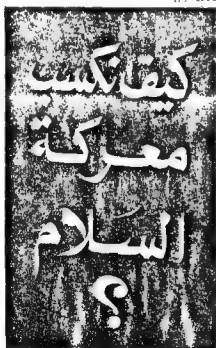 كيف نكسب
معركة
السلام
؟